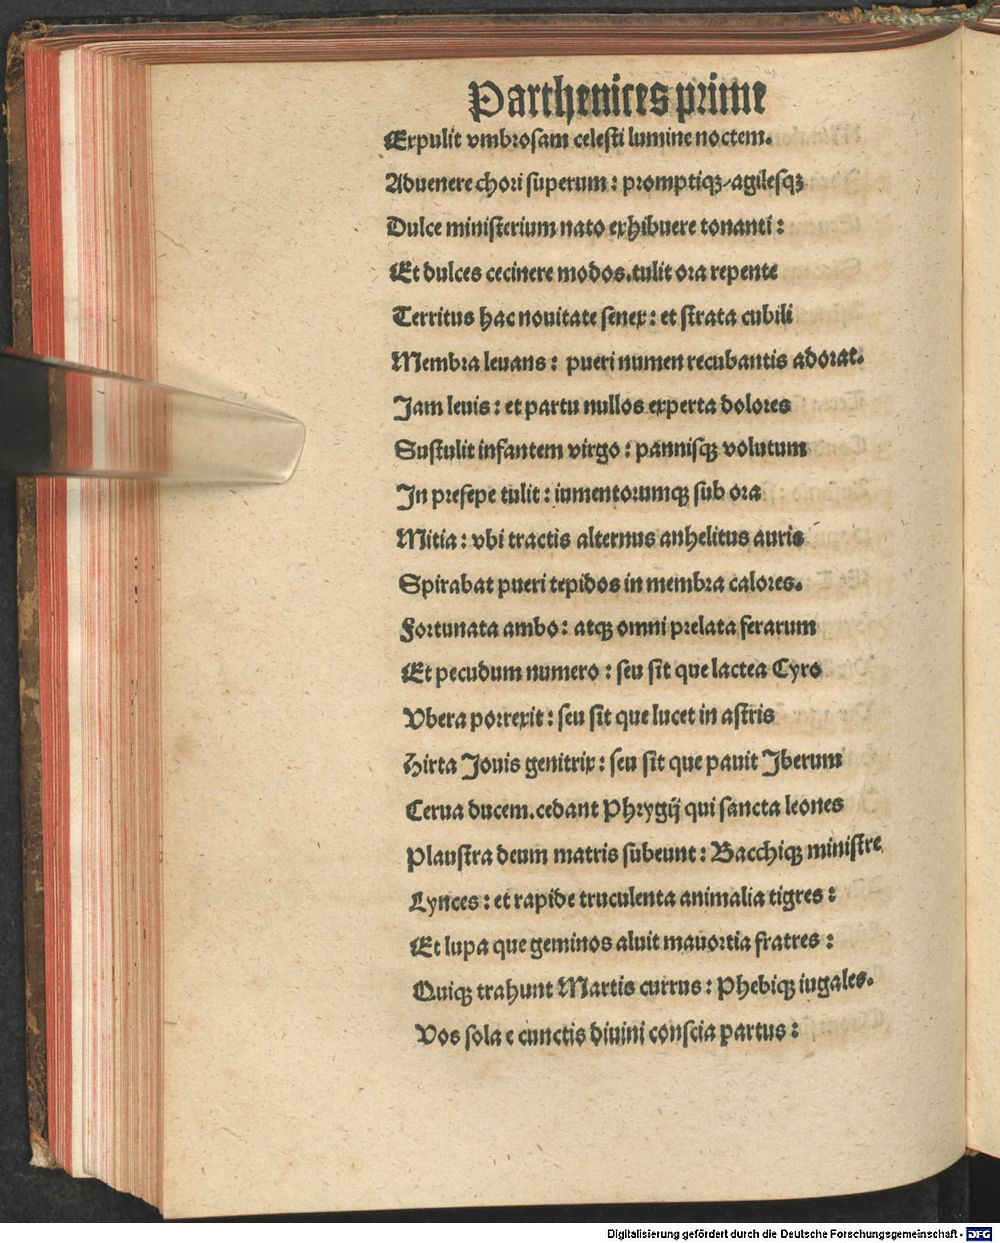 Parthenices prime
Expulit vmbrosam celesti lumine noctem.
Aduenere chori superum: promptiqꝫ/agilesqꝫ
Dulce ministerium nato exhibuere tonanti:
Et dulces cecinere modos.tulit ora repente
Territus hac nouitate senex: et strata cubili
Membra leuans: pueri numen recubantis adorat.
Jam leuis: et partu nullos experta dolores
Sustulit infantem virgo: pannisqꝫ volutum
In presepe tulit: iumentorumqꝫ sub ora
Mitia: vbi tractis alternus anhelitus auris
Spirabat pueri tepidos in membra calores.
Fortunata ambo: atqꝫ omni prelata ferarum
Et pecudum numero: seu sit que lactea Cyro
Vbera porrexit: seu sit que lucet in astris
Hirta Jouis genitrix: seu sit que pauit Iberum
Cerua ducem.cedant Phrygij qui sancta leones
Plaustra deum matris subeunt: Bacchiqꝫ ministre
Lynces: et rapide truculenta animalia tigres:
Et lupa que geminos aluit mauortia fratres:
Quiqꝫ trahunt Martis currus: Phebiqꝫ iugales.
Vos sola e cunctis diuini conscia partus:
Digitalisierung gefördert durch die Deutsche Forschungsgemeinschaft - DFG